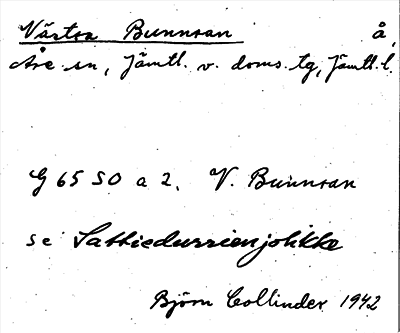 Västra Bunnran å,
Åre sn, Jämtl. v. doms. tg, Jämtl. l.
G 65 SO a 2. V. Bunnran
se Sattiedurrienjohkke
Björn Collinder 1942